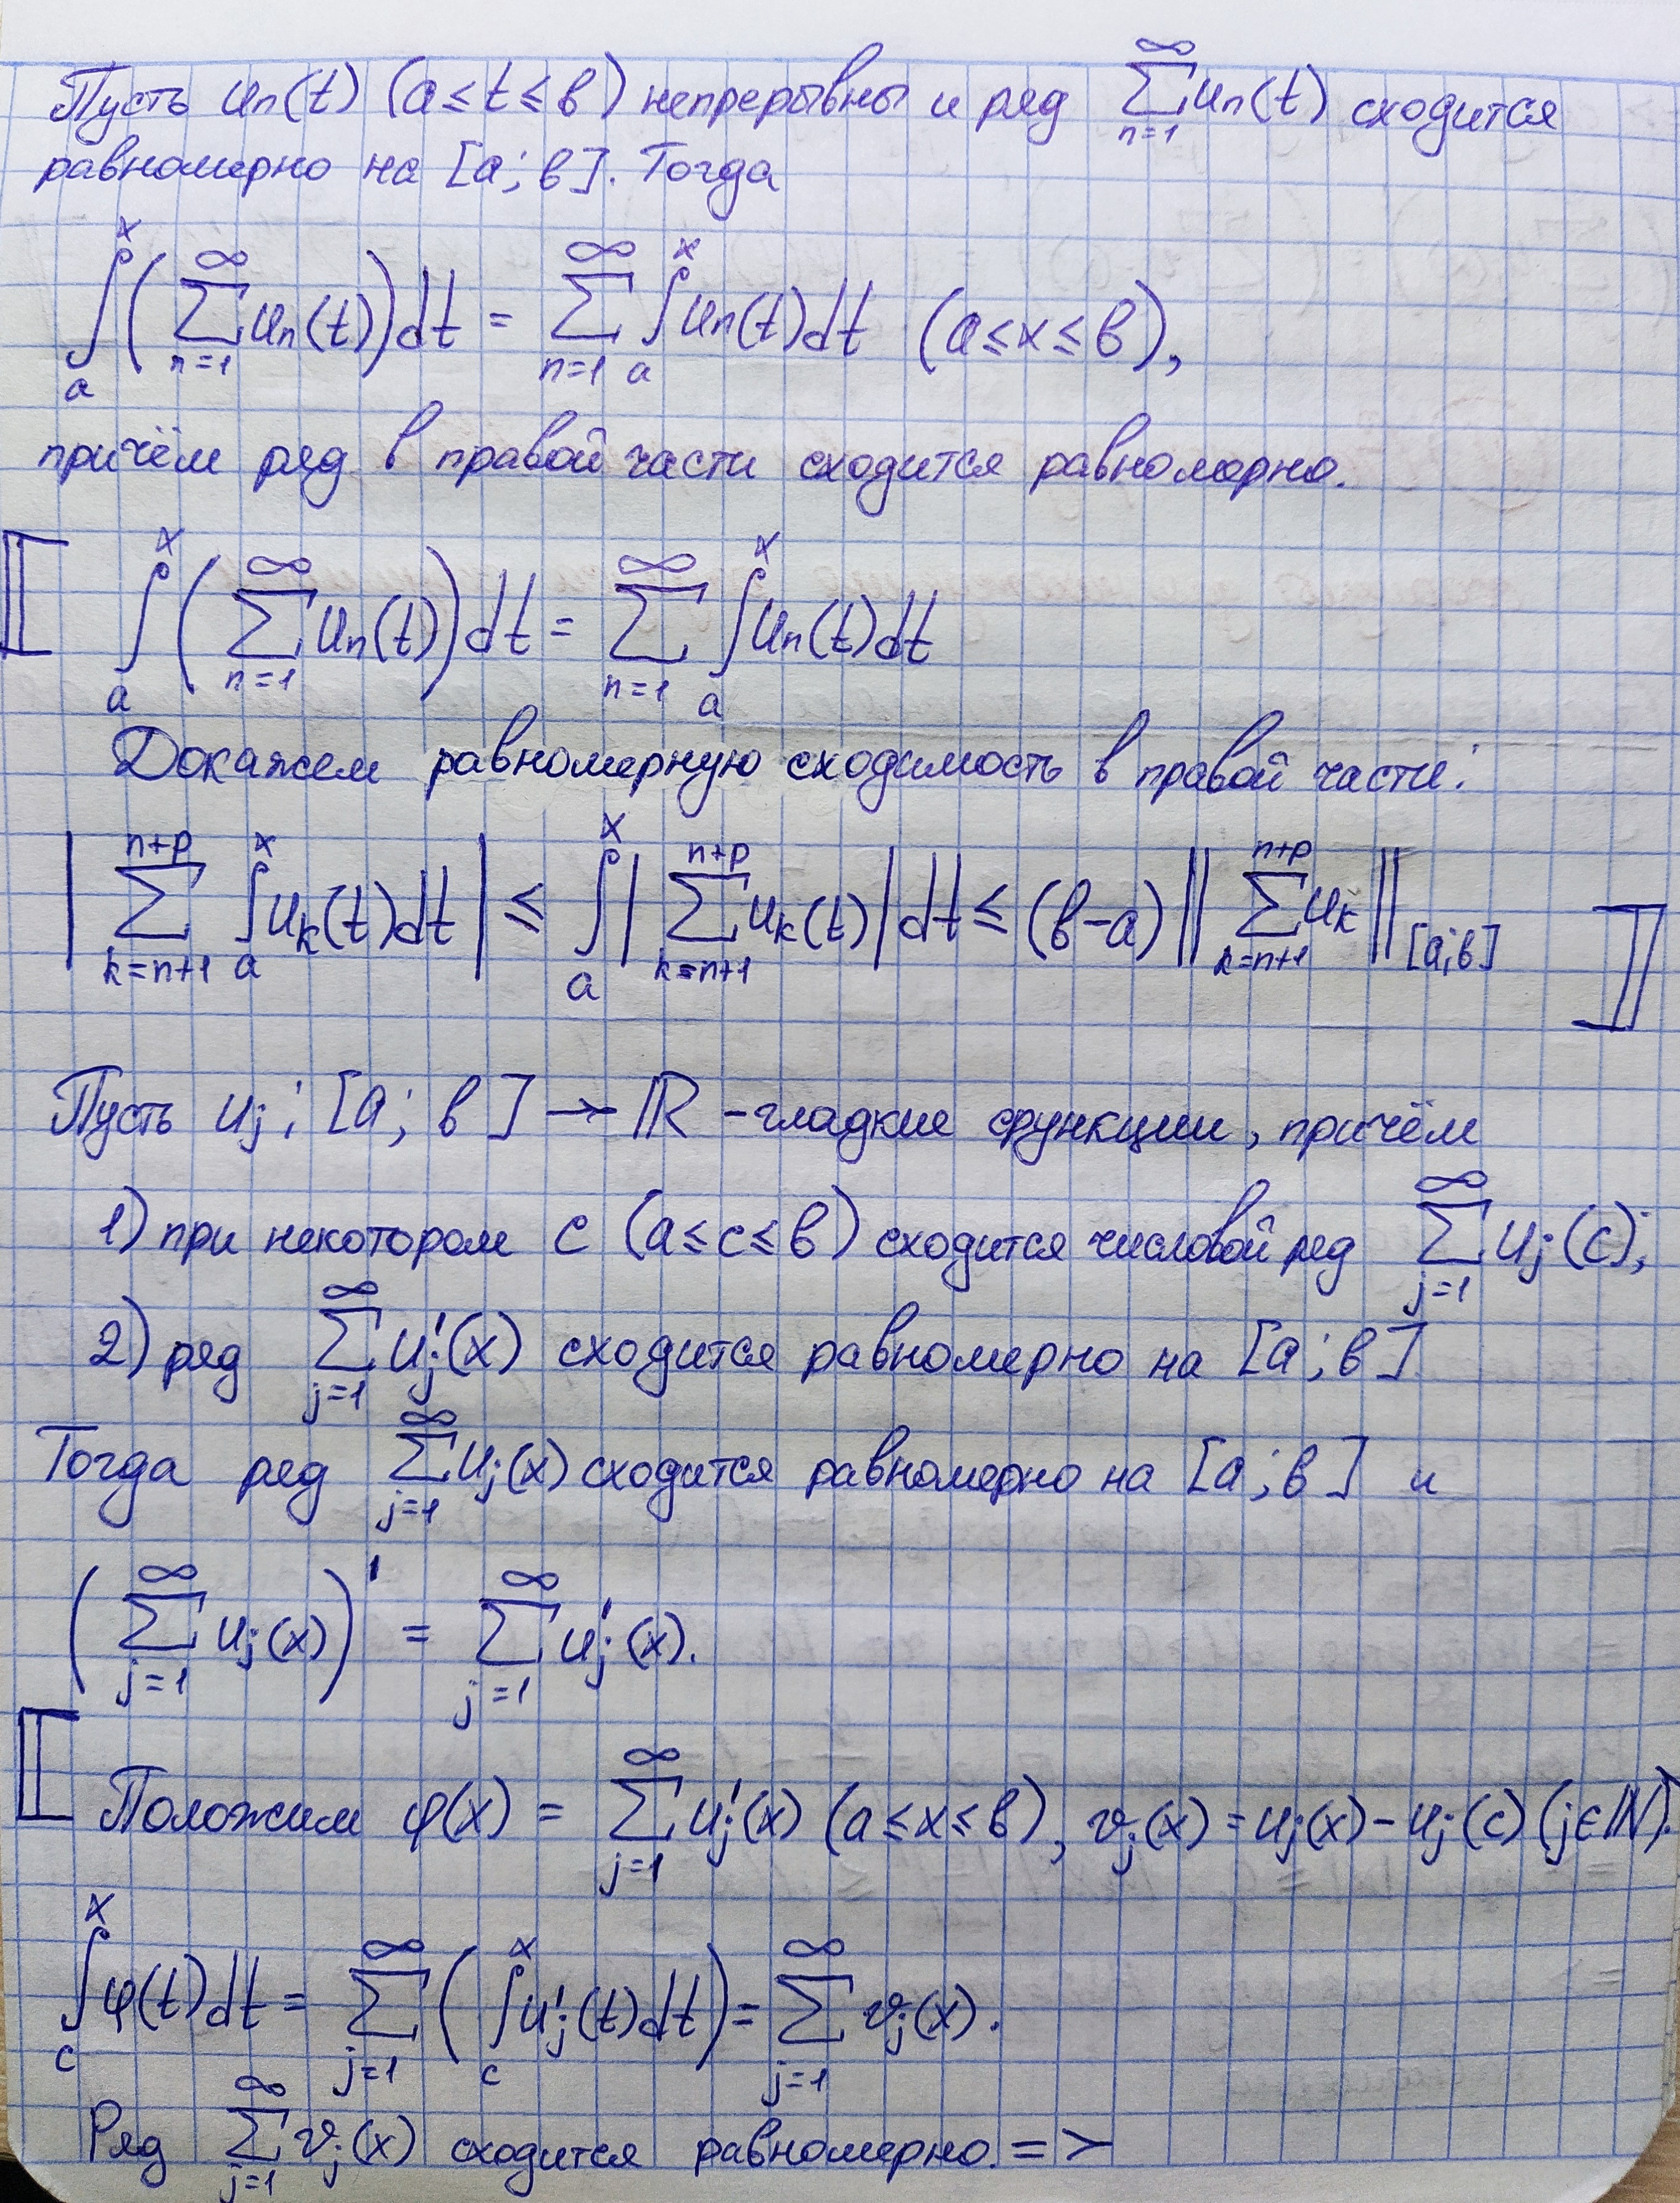 Пусть uₙ(t) (a ≤ t ≤ b) непрерывны и ряд ∑_{n=1}^{∞} uₙ(t) сходится
равномерно на [a; b]. Тогда
∫_a^x (∑_{n=1}^{∞} uₙ(t)) dt = ∑_{n=1}^{∞} ∫_a^x uₙ(t) dt (a ≤ x ≤ b),
причём ряд в правой части сходится равномерно.
⟦ ∫_a^x (∑_{n=1}^{∞} uₙ(t)) dt = ∑_{n=1}^{∞} ∫_a^x uₙ(t) dt
Докажем равномерную сходимость в правой части:
|∑_{k=n+1}^{n+p} ∫_a^x u_k(t) dt| ≤ ∫_a^x |∑_{k=n+1}^{n+p} u_k(t)| dt ≤ (b-a) ‖∑_{k=n+1}^{n+p} u_k‖_{[a;b]} ⟧
Пусть u_j : [a; b] → ℝ - гладкие функции, причём
1) при некотором c (a ≤ c ≤ b) сходится числовой ряд ∑_{j=1}^{∞} u_j(c);
2) ряд ∑_{j=1}^{∞} u_j'(x) сходится равномерно на [a; b].
Тогда ряд ∑_{j=1}^{∞} u_j(x) сходится равномерно на [a; b] и
(∑_{j=1}^{∞} u_j(x))' = ∑_{j=1}^{∞} u_j'(x).
⟦ Положим φ(x) = ∑_{j=1}^{∞} u_j'(x) (a ≤ x ≤ b), v_j(x) = u_j(x) - u_j(c) (j ∈ ℕ).
∫_c^x φ(t) dt = ∑_{j=1}^{∞} (∫_c^x u_j'(t) dt) = ∑_{j=1}^{∞} v_j(x).
Ряд ∑_{j=1}^{∞} v_j(x) сходится равномерно. =>